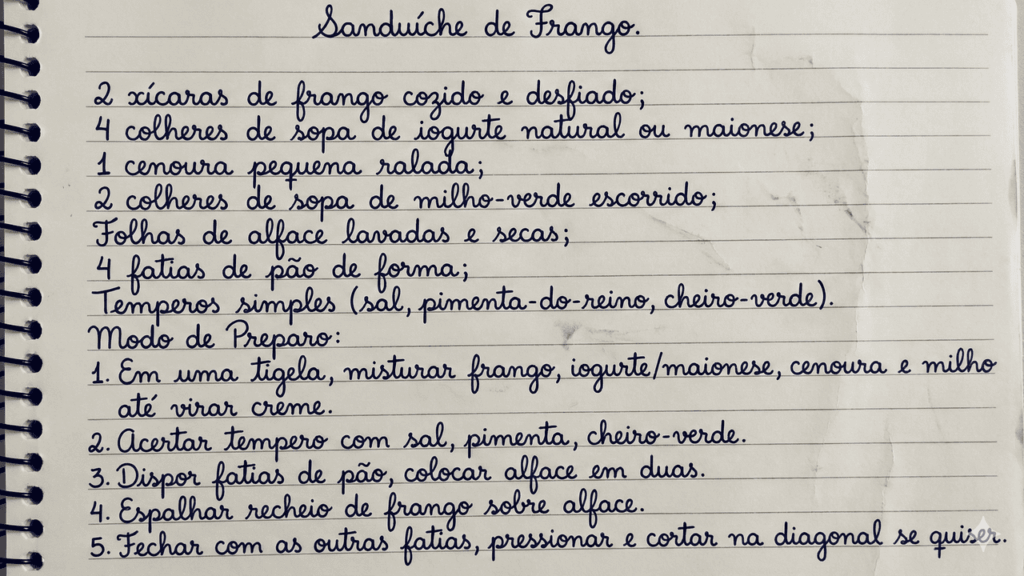 Sanduíche de Frango.
2 xícaras de frango cozido e desfiado;
4 colheres de sopa de iogurte natural ou maionese;
1 cenoura pequena ralada;
2 colheres de sopa de milho-verde escorrido;
Folhas de alface lavadas e secas;
4 fatias de pão de forma;
Temperos simples (sal, pimenta-do-reino, cheiro-verde).
Modo de Preparo:
1. Em uma tigela, misturar frango, iogurte/maionese, cenoura e milho
até virar creme.
2. Acertar tempero com sal, pimenta, cheiro-verde.
3. Dispor fatias de pão, colocar alface em duas.
4. Espalhar recheio de frango sobre alface.
5. Fechar com as outras fatias, pressionar e cortar na diagonal se quiser.